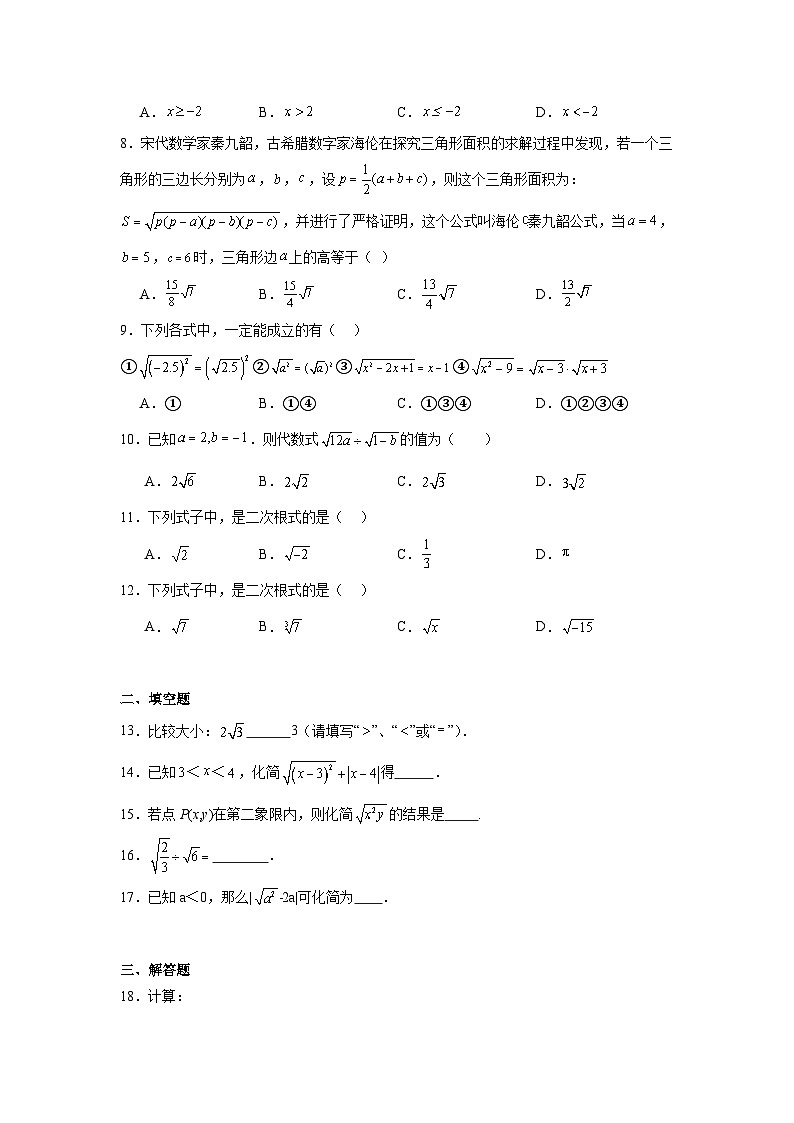 A. x≥−2 B. x＞2 C. x≤−2 D. x＜−2
8．宋代数学家秦九韶，古希腊数字家海伦在探究三角形面积的求解过程中发现，若一个三
角形的三边长分别为a，b，c，设p＝1/2(a+b+c)，则这个三角形面积为：
S＝√(p(p−a)(p−b)(p−c))，并进行了严格证明，这个公式叫海伦c秦九韶公式，当a＝4，
b＝5，c＝6时，三角形边a上的高等于（ ）
A．15/8√7 B．15/4√7 C．13/4√7 D．13/2√7
9．下列各式中，一定能成立的有（ ）
①√((−2.5)²)＝(√2.5)²②√a²＝(√a)²③√(x²−2x+1)＝x−1④√(x²−9)＝√(x−3)·√(x+3)
A．① B．①④ C．①③④ D．①②③④
10．已知a＝2,b＝−1．则代数式√(12a)÷√(1−b)的值为（ ）
A．2√6 B．2√2 C．2√3 D．3√2
11．下列式子中，是二次根式的是（ ）
A．√2 B．√(−2) C．1/3 D．π
12．下列式子中，是二次根式的是（ ）
A．√7 B．∛7 C．√x D．√(−15)
二、填空题
13．比较大小：2√3______3（请填写“＞”、“＜”或“＝”）．
14．已知3＜x＜4，化简√((x−3)²)+|x−4|得_____．
15．若点P(x,y)在第二象限内，则化简√(x²y)的结果是_____.
16．√(2/3)÷√6＝________．
17．已知a＜0，那么|√a²-2a|可化简为____．
三、解答题
18．计算：